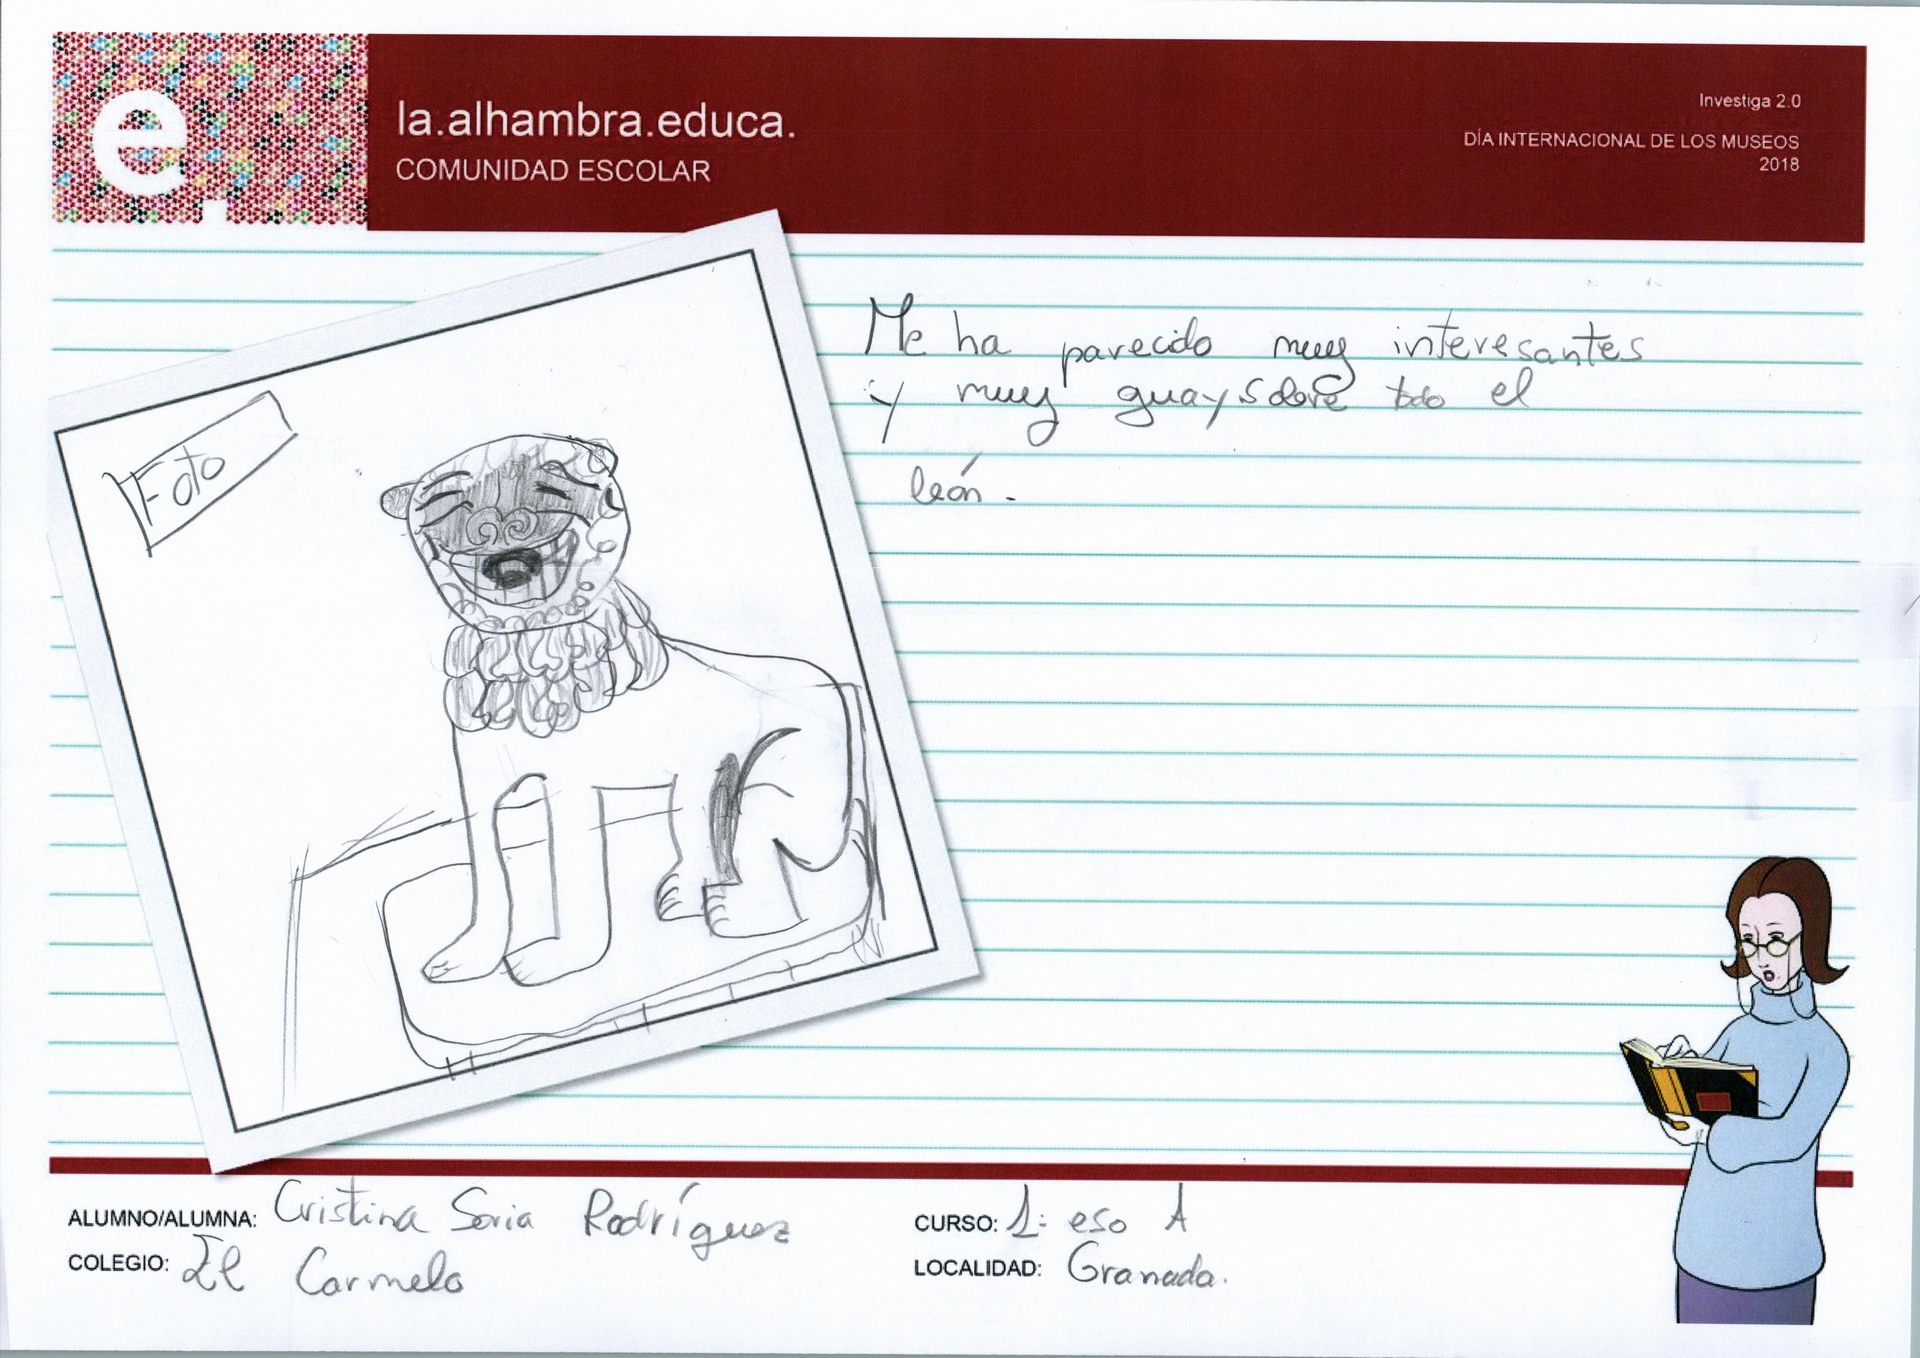 e.
la.alhambra.educa.
COMUNIDAD ESCOLAR
Investiga 2.0
DÍA INTERNACIONAL DE LOS MUSEOS
2018
Foto
Me ha parecido muy interesantes
y muy guay sobre todo el
león.
ALUMNO/ALUMNA: Cristina Soria Rodríguez
COLEGIO: El Carmelo
CURSO: 1º eso A
LOCALIDAD: Granada.